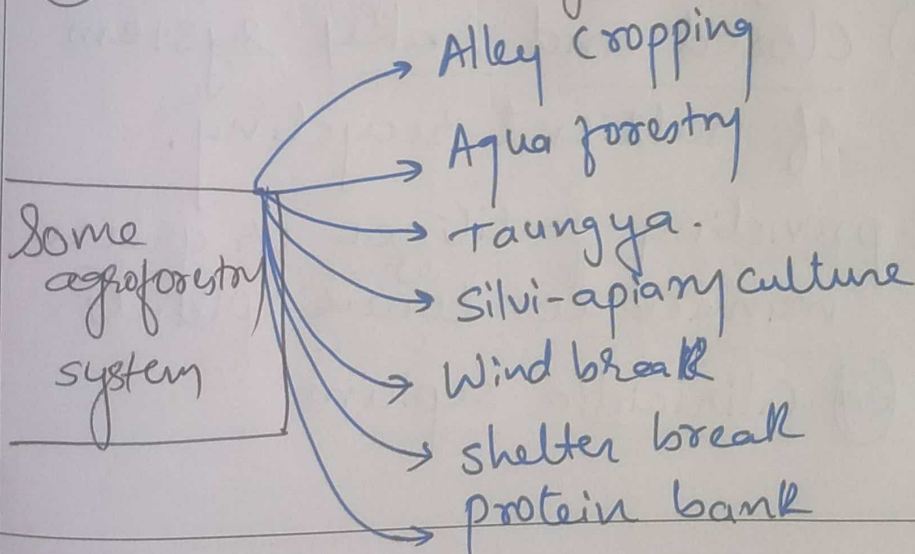 Some
agroforestry
system
Alley Cropping
Aqua forestry
Taungya.
Silvi-apiary culture
Wind break
shelter break
protein bank